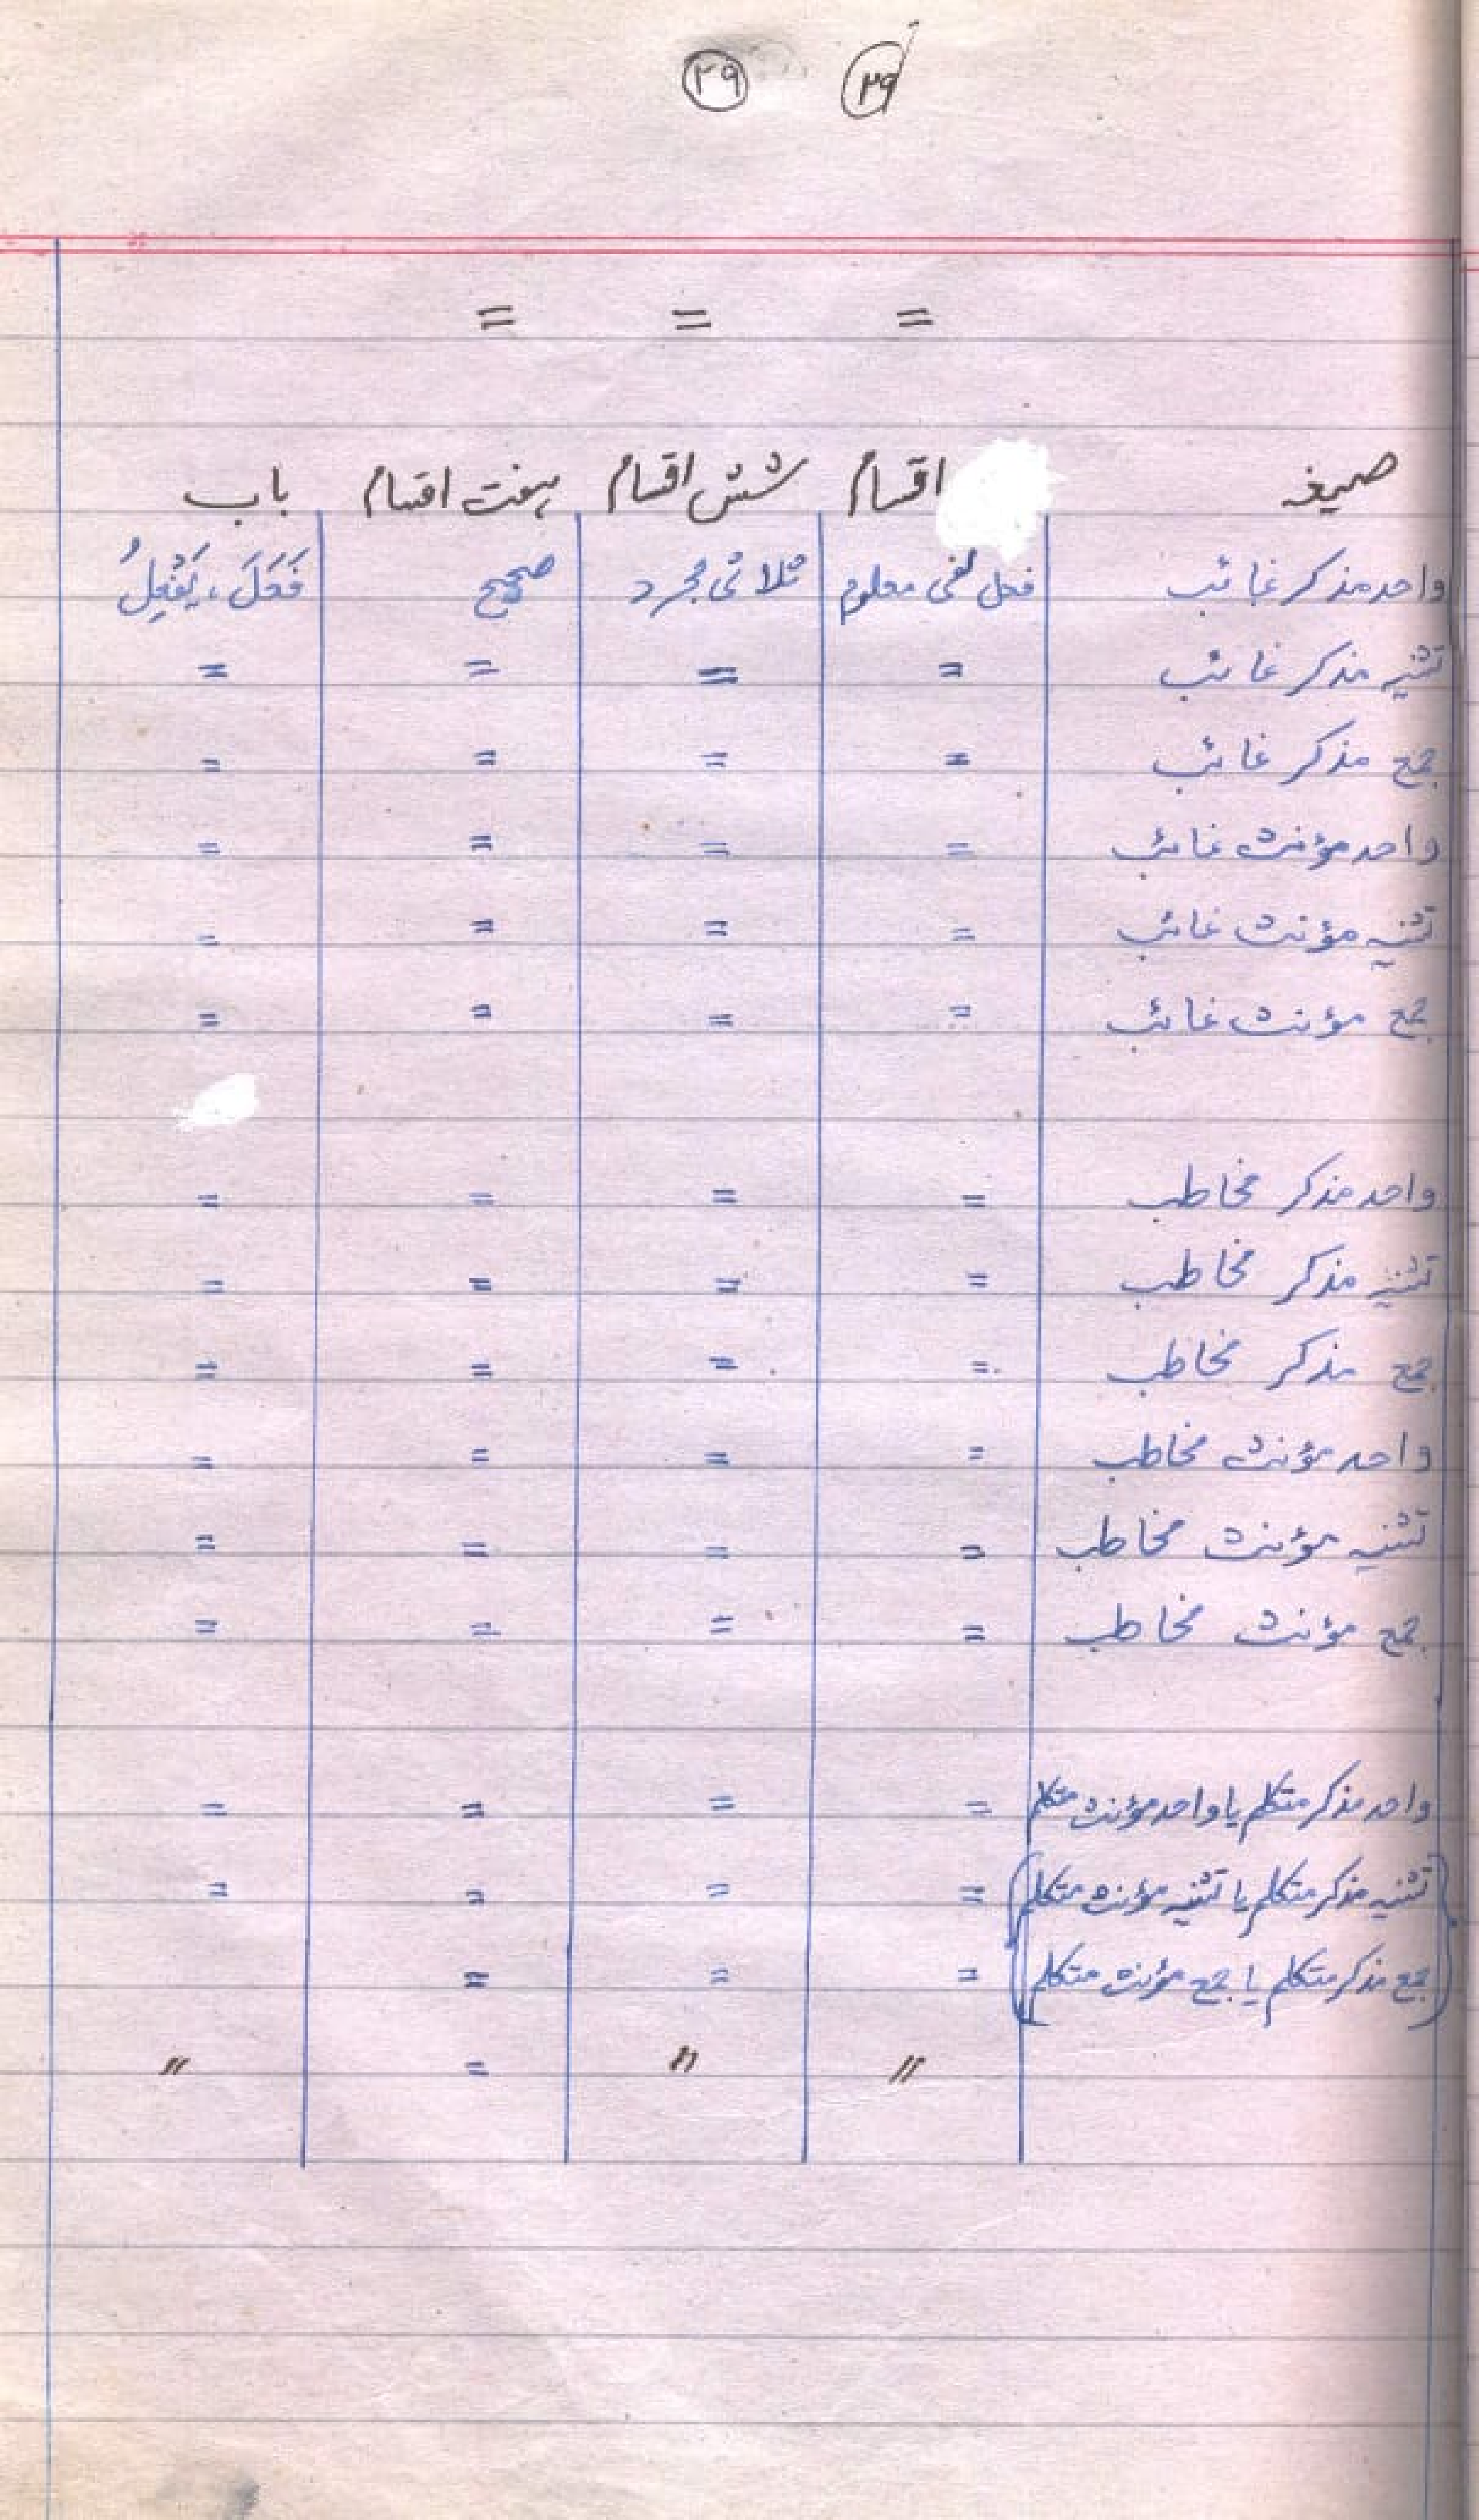 ۲۹ ۲۹
= = =
صیغہ اقسام شش اقسام ہفت اقسام باب
واحد مذکر غائب فعل نفی معلوم ثلاثی مجرد صحیح فَعَلَ، یَفْعِلُ
تثنیہ مذکر غائب = = = =
جمع مذکر غائب = = = =
واحد مؤنث غائب = = = =
تثنیہ مؤنث غائب = = = =
جمع مؤنث غائب = = = =
واحد مذکر مخاطب = = = =
تثنیہ مذکر مخاطب = = = =
جمع مذکر مخاطب = = = =
واحد مؤنث مخاطب = = = =
تثنیہ مؤنث مخاطب = = = =
جمع مؤنث مخاطب = = = =
واحد مذکر متکلم یا واحد مؤنث متکلم = = = =
(تثنیہ مذکر متکلم یا تثنیہ مؤنث متکلم) = = = =
(جمع مذکر متکلم یا جمع مؤنث متکلم) = = =
〃 〃 = 〃